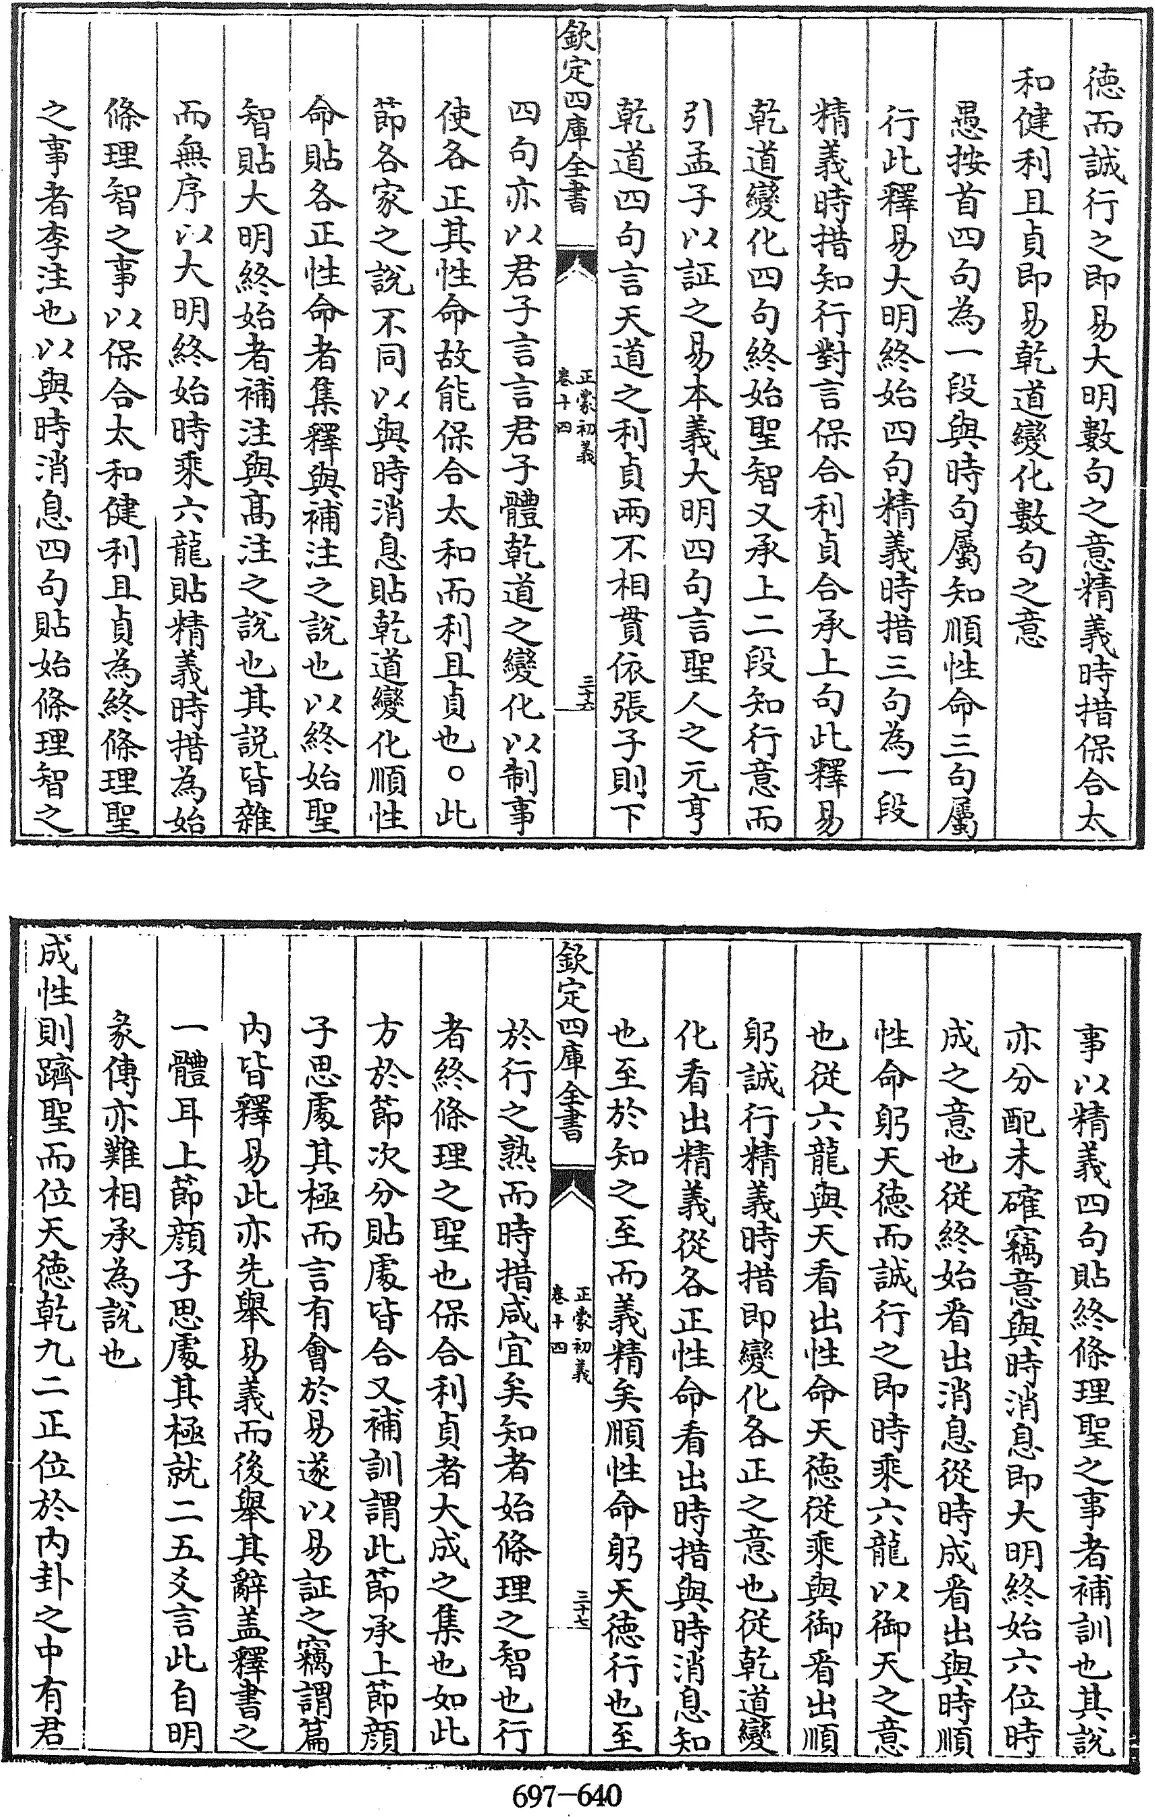 德而誠行之即易大明數句之意精義時措保合太
和健利且貞即易乾道變化數句之意
愚按首四句為一段與時句屬知順性命三句屬
行此釋易大明終始四句精義時措三句為一段
精義時措知行對言保合利貞合承上句此釋易
乾道變化四句終始聖智又承上二段知行意而
引孟子以証之易本義大明四句言聖人之元亨
乾道四句言天道之利貞兩不相貫依張子則下
欽定四庫全書
正蒙初義
卷十四
三十六
四句亦以君子言言君子體乾道之變化以制事
使各正其性命故能保合太和而利且貞也○此
節各家之說不同以與時消息貼乾道變化順性
命貼各正性命者集釋與補注之說也以終始聖
智貼大明終始者補注與高注之說也其說皆雜
而無序以大明終始時乘六龍貼精義時措為始
條理智之事以保合太和健利且貞為終條理聖
之事者李注也以與時消息四句貼始條理智之
事以精義四句貼終條理聖之事者補訓也其說
亦分配未確竊意與時消息即大明終始六位時
成之意也從終始看出消息從時成看出與時順
性命躬天德而誠行之即時乘六龍以御天之意
也從六龍與天看出性命天德從乘與御看出順
躬誠行精義時措即變化各正之意也從乾道變
化看出精義從各正性命看出時措與時消息知
也至於知之至而義精矣順性命躬天德行也至
欽定四庫全書
正蒙初義
卷十四
三十七
於行之熟而時措咸宜矣知者始條理之智也行
者終條理之聖也保合利貞者大成之集也如此
方於節次分貼處皆合又補訓謂此節承上節顔
子思處其極而言有會於易遂以易証之竊謂篇
內皆釋易此亦先舉易義而後舉其辭盖釋書之
一體耳上節顔子思處其極就二五爻言此自明
彖傳亦難相承為說也
成性則躋聖而位天德乾九二正位於內卦之中有君
697-640